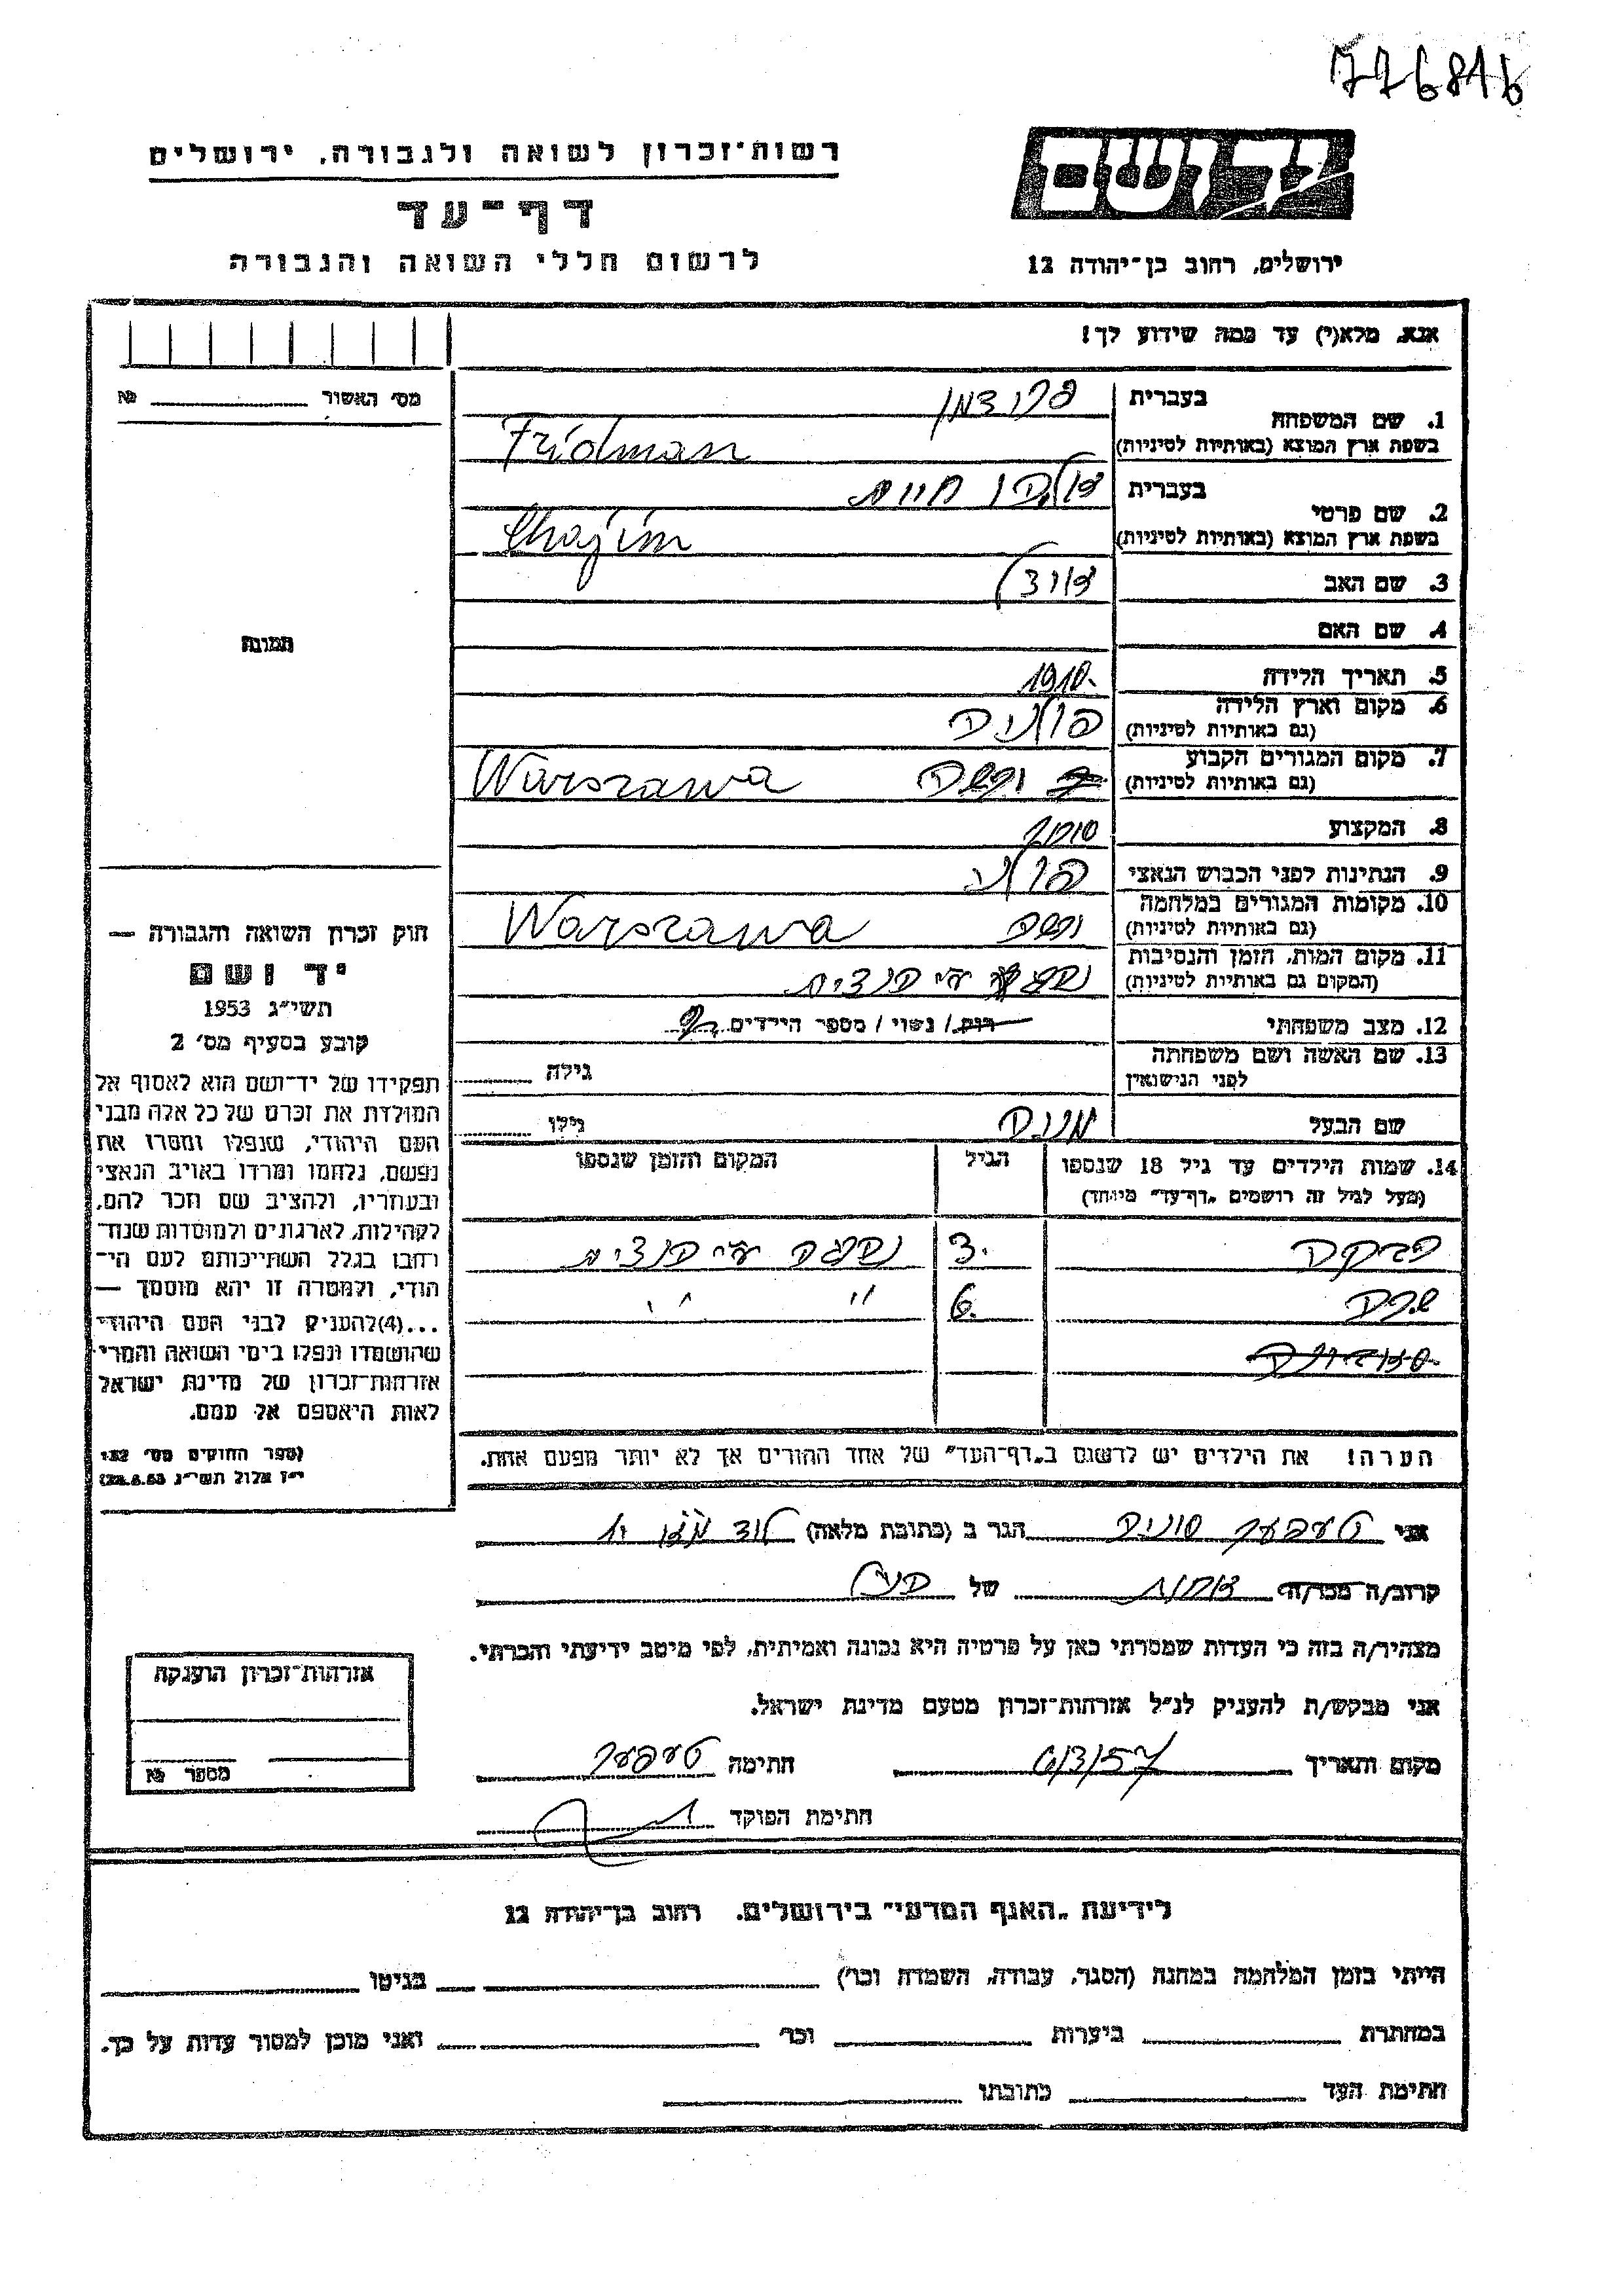 776816
רשות־זכרון לשואה ולגבורה, ירושלים
יד ושם
דף־עד
לרשום חללי השואה והגבורה
ירושלים, רחוב בן־יהודה 12
אנא, מלא(י) עד כמה שידוע לך!
מס׳ האשור № 
1. שם המשפחה בעברית פרידמן
בשפת ארץ המוצא (באותיות לטיניות) Fridman
2. שם פרטי בעברית חיים
בשפת ארץ המוצא (באותיות לטיניות) Chajim
3. שם האב
4. שם האם
תמונה
5. תאריך הלידה 1910.
6. מקום וארץ הלידה (גם באותיות לטיניות) פולניה
7. מקום המגורים הקבוע (גם באותיות לטיניות) ורשה Warszawa
8. המקצוע סוחר
9. הנתינות לפני הכבוש הנאצי פולני
10. מקומות המגורים במלחמה (גם באותיות לטיניות) ורשה Warszawa
11. מקום המות, הזמן והנסיבות (המקום גם באותיות לטיניות) נספה ע״י הנצים
12. מצב משפחתי רווק / נשוי / מספר הילדים 2
13. שם האשה ושם משפחתה לפני הנישואין גילה
שם הבעל מניה גילו
14. שמות הילדים עד גיל 18 שנספו (מעל לגיל זה רושמים „דף־עד״ מיוחד) הגיל המקום והזמן שנספו
3. נספה ע״י הנצים
שרה 6. ״ ״
הערה! את הילדים יש לרשום ב„דף־העד״ של אחד ההורים אך לא יותר מפעם אחת.
חוק זכרון השואה והגבורה —
יד ושם
תשי״ג 1953
קובע בסעיף מס׳ 2
תפקידו של יד־ושם הוא לאסוף אל
המולדת את זכרם של כל אלה מבני
העם היהודי, שנפלו ומסרו את
נפשם, נלחמו ומרדו באויב הנאצי
ובעוזריו, ולהציב שם וזכר להם,
לקהילות, לארגונים ולמוסדות שנח־
רחבו בגלל השתייכותם לעם הי־
הודי, ולמטרה זו יהא מוסמך —
...(4)להעניק לבני העם היהודי
שהושמדו ונפלו בימי השואה והמרי
אזרחות־זכרון של מדינת ישראל
לאות היאספם אל עמם.
(ספר החוקים מס׳ 132
י״ז אלול תשי״ג 28.8.53)
אני טעפער סוניה הגר ב (כתובת מלאה) לוד
קרוב/ה מכר/ה של הנ״ל
מצהיר/ה בזה כי העדות שמסרתי כאן על פרטיה היא נכונה ואמיתית, לפי מיטב ידיעתי והכרתי.
אני מבקש/ת להעניק לנ״ל אזרחות־זכרון מטעם מדינת ישראל.
מקום ותאריך 6/3/57 חתימה טעפער
חתימת הפוקד
אזרחות־זכרון הוענקה
מספר №
לידיעת „האגף המדעי״ בירושלים, רחוב בן־יהודה 12
הייתי בזמן המלחמה במחנה (הסגר, עבודה, השמדה וכו׳) בגיטו
במחתרת ביערות וכו׳ ואני מוכן למסור עדות על כך.
חתימת העד כתובתו